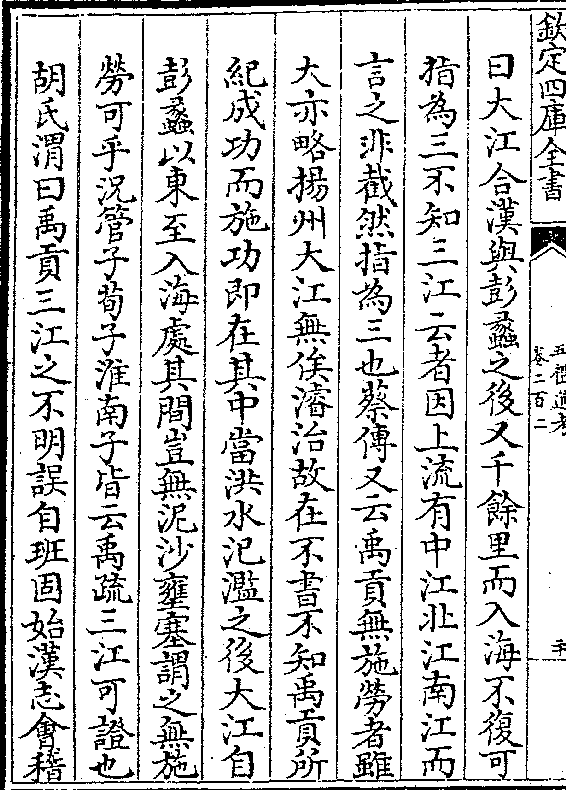 欽定四庫全書
五禮通考
卷二百二
二十
曰大江合漢與彭蠡之後又千餘里而入海不復可
指為三不知三江云者因上流有中江北江南江而
言之非截然指為三也蔡傳又云禹貢無施勞者雖
大亦略揚州大江無俟濬治故在不書不知禹貢所
紀成功而施功即在其中當洪水氾濫之後大江自
彭蠡以東至入海處其間豈無泥沙壅塞謂之無施
勞可乎況管子荀子淮南子皆云禹疏三江可證也
胡氏渭曰禹貢三江之不明誤自班固始漢志會稽